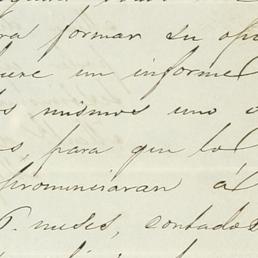 ra formar su opi
un informe
los mismos uno o
os, para que lo
pronunciaran á
T. meses, contados